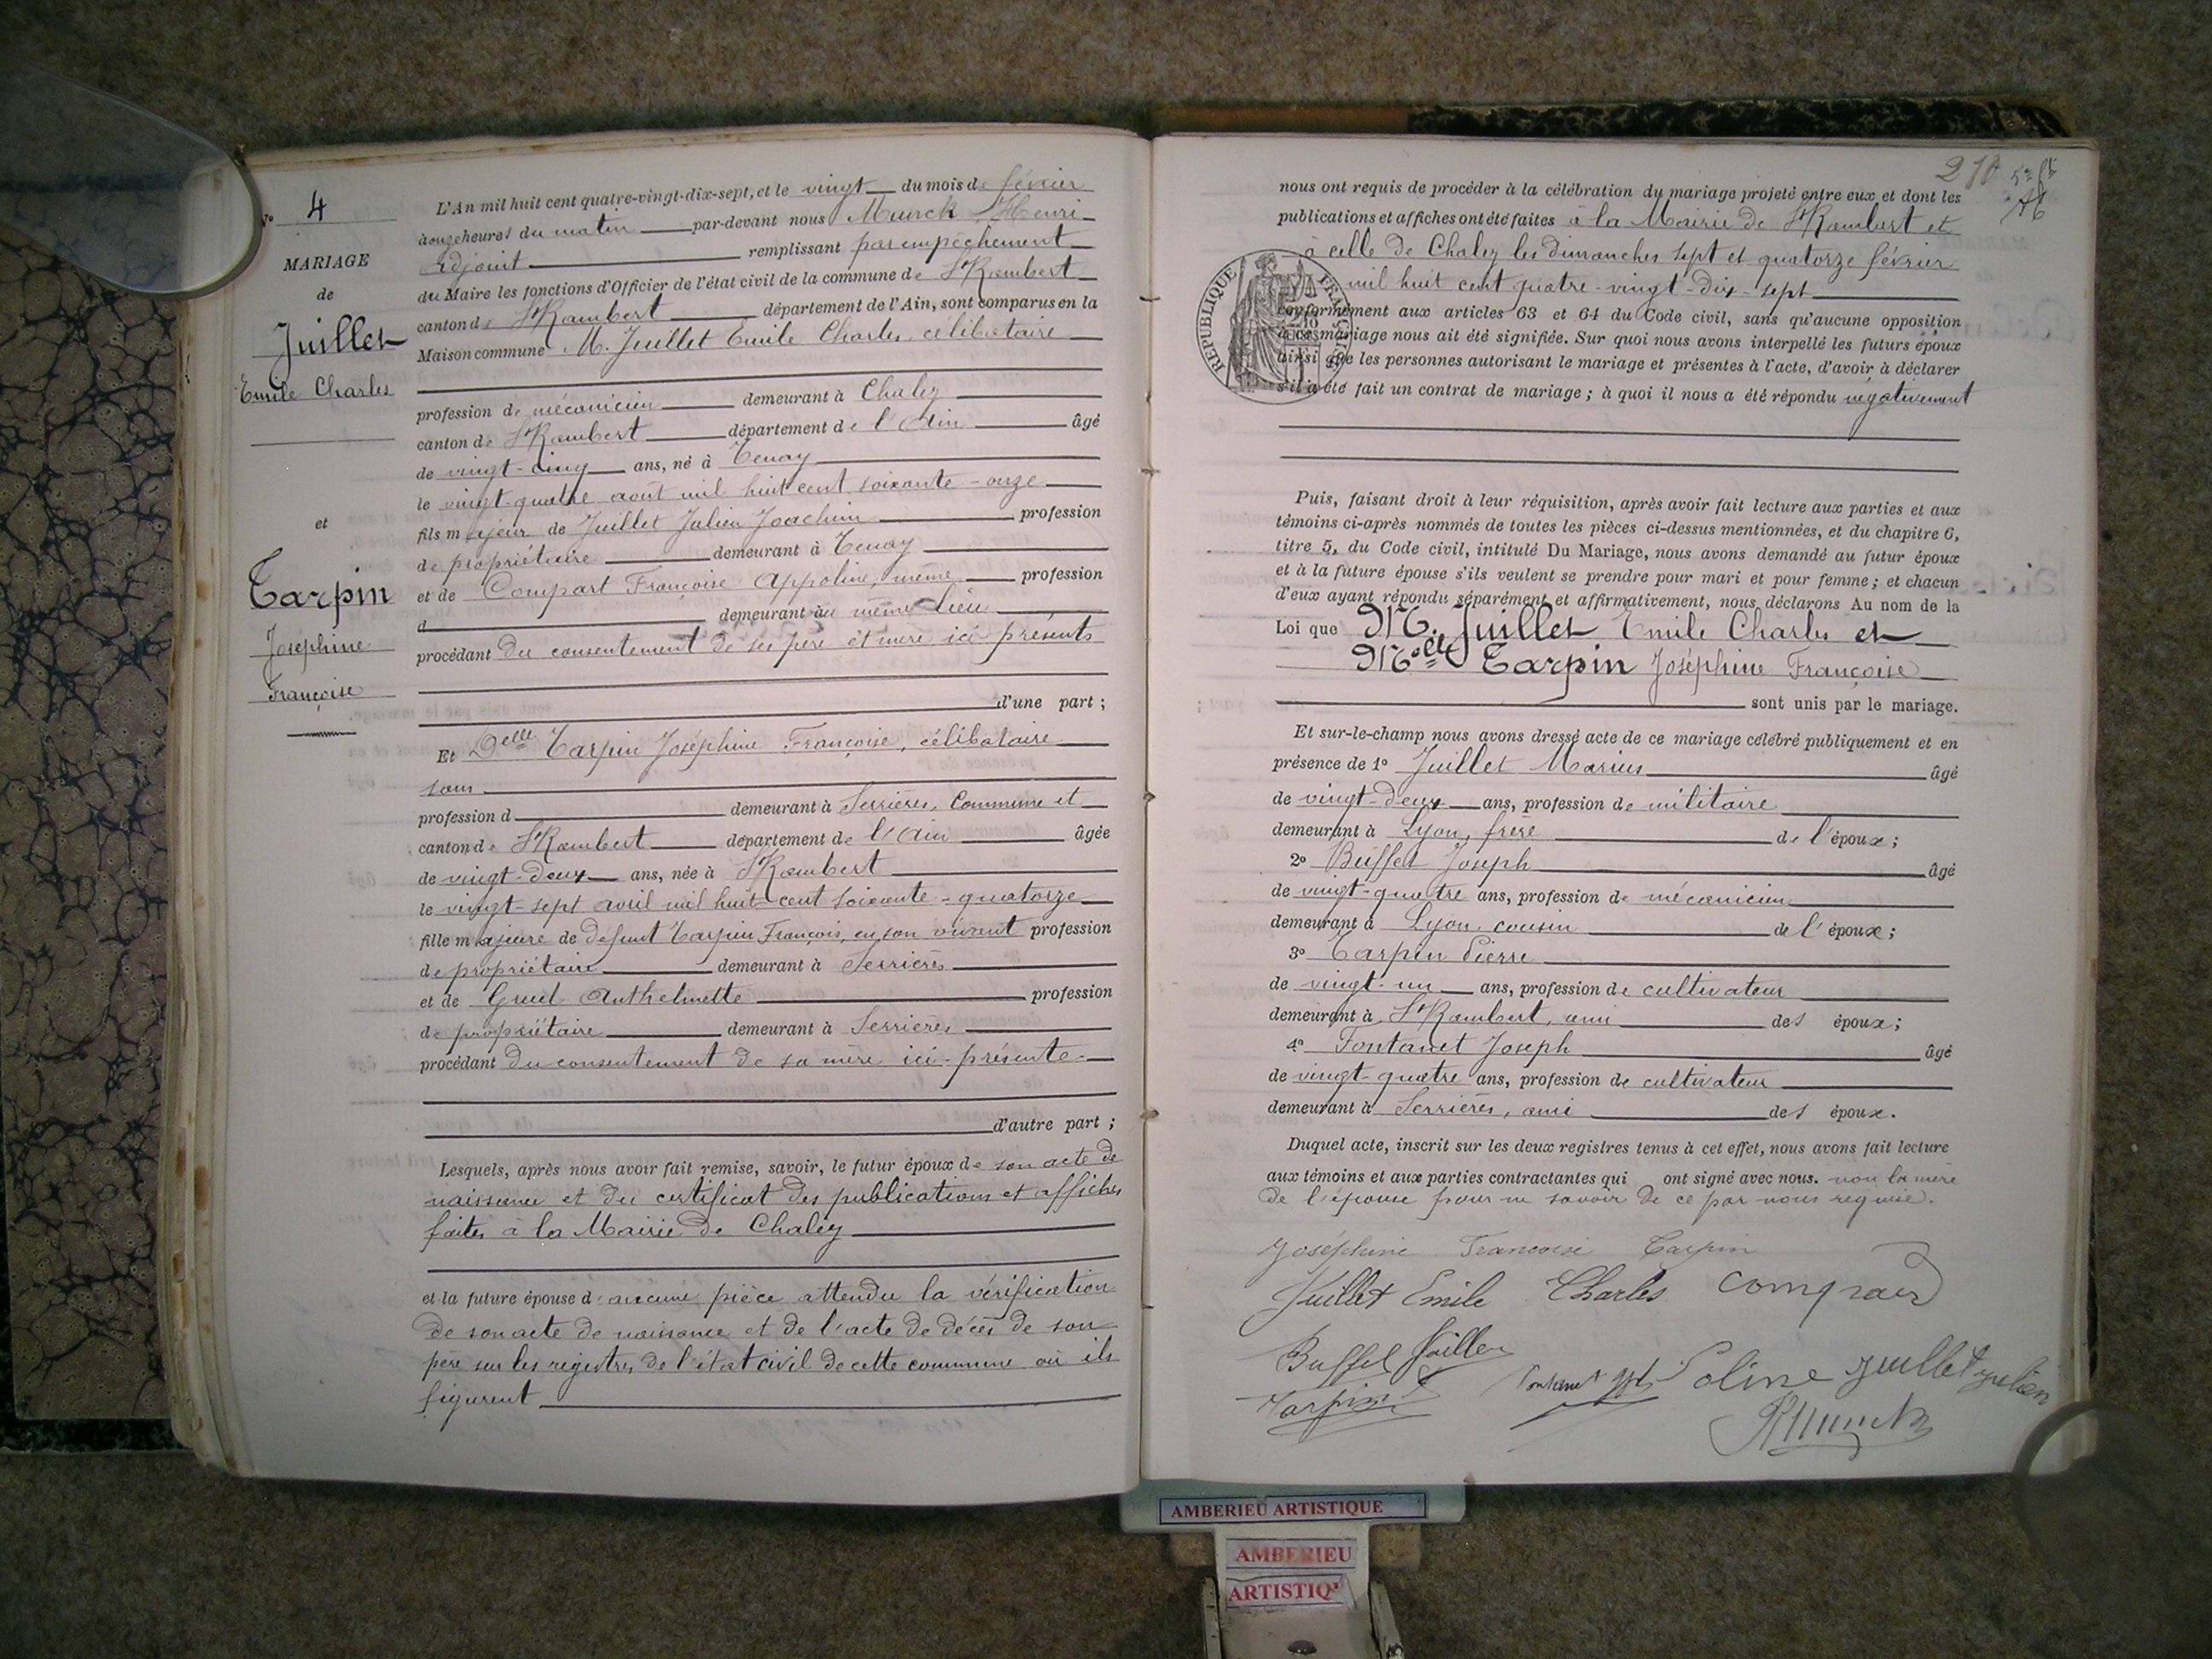 N° 4
MARIAGE
de
Juillet
Emile Charles
et
Tarpin
Joséphine
Françoise
L'An mil huit cent quatre-vingt-dix-sept, et le vingt du mois de février
à onze heures du matin par-devant nous Munck Henri
adjoint remplissant par empêchement
du Maire les fonctions d'Officier de l'état civil de la commune de St Rambert
canton de St Rambert département de l'Ain, sont comparus en la
Maison commune M. Juillet Emile Charles, célibataire
profession de mécanicien demeurant à Chaley
canton de St Rambert département de l'Ain âgé
de vingt-cinq ans, né à Tenay
le vingt-quatre août mil huit cent soixante-onze
fils majeur de Juillet Julien Joachim profession
de propriétaire demeurant à Tenay
et de Françoise Appoline, même profession
d demeurant au même lieu
procédant du consentement de ses père et mère ici présents
d'une part ;
Et Delle Tarpin Joséphine Françoise, célibataire
sans
profession d demeurant à Serrières, Commune et
canton de St Rambert département de l'Ain âgée
de vingt-deux ans, née à St Rambert
le vingt-sept avril mil huit cent soixante-quatorze
fille majeure de défunt Tarpin François, en son vivant profession
de propriétaire demeurant à Serrières
et de Anthelmette profession
de propriétaire demeurant à Serrières
procédant du consentement de sa mère ici-présente
d'autre part ;
Lesquels, après nous avoir fait remise, savoir, le futur époux de son acte de
naissance et du certificat des publications et affiches
faites à la Mairie de Chaley
et la future épouse d'aucune pièce attendu la vérification
de son acte de naissance et de l'acte de décès de son
père sur les registres de l'état civil de cette commune où ils
figurent
nous ont requis de procéder à la célébration du mariage projeté entre eux et dont les
publications et affiches ont été faites à la Mairie de St Rambert et
à celle de Chaley les dimanches sept et quatorze février
mil huit cent quatre-vingt-dix-sept
REPUBLIQUE FRANÇAISE
conformément aux articles 63 et 64 du Code civil, sans qu'aucune opposition
à ces mariage nous ait été signifiée. Sur quoi nous avons interpellé les futurs époux
ainsi que les personnes autorisant le mariage et présentes à l'acte, d'avoir à déclarer
s'il a été fait un contrat de mariage ; à quoi il nous a été répondu négativement
Puis, faisant droit à leur réquisition, après avoir fait lecture aux parties et aux
témoins ci-après nommés de toutes les pièces ci-dessus mentionnées, et du chapitre 6,
titre 5, du Code civil, intitulé Du Mariage, nous avons demandé au futur époux
et à la future épouse s'ils veulent se prendre pour mari et pour femme ; et chacun
d'eux ayant répondu séparément et affirmativement, nous déclarons Au nom de la
Loi que M. Juillet Emile Charles et
Melle Tarpin Joséphine Françoise
sont unis par le mariage.
Et sur-le-champ nous avons dressé acte de ce mariage célébré publiquement et en
présence de 1° Juillet Marius âgé
de vingt-deux ans, profession de militaire
demeurant à Lyon, frère de l'époux ;
2° Buffet Joseph âgé
de vingt-quatre ans, profession de mécanicien
demeurant à Lyon, cousin de l'époux ;
3° Tarpin Pierre
de vingt-un ans, profession de cultivateur
demeurant à St Rambert, ami des époux ;
4° Fontanet Joseph âgé
de vingt-quatre ans, profession de cultivateur
demeurant à Serrières, ami des époux.
Duquel acte, inscrit sur les deux registres tenus à cet effet, nous avons fait lecture
aux témoins et aux parties contractantes qui ont signé avec nous. non la mère
de l'épouse pour ne savoir de ce par nous requise.
Joséphine Francoise Tarpin
Juillet Emile Charles
Buffet
Tarpin Poline Juillet Julien
Munck
AMBERIEU ARTISTIQUE
AMBERIEU
ARTISTIQ